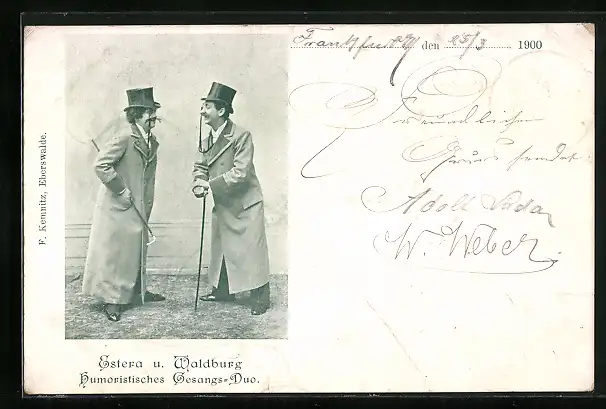 F. Kemnitz, Eberswalde.
Estera u. Waldburg
Humoristisches Gesangs-Duo.
Frankfurt den 25/3 1900
Freundlichen
Gruss sendet
Adolf
W. Weber.